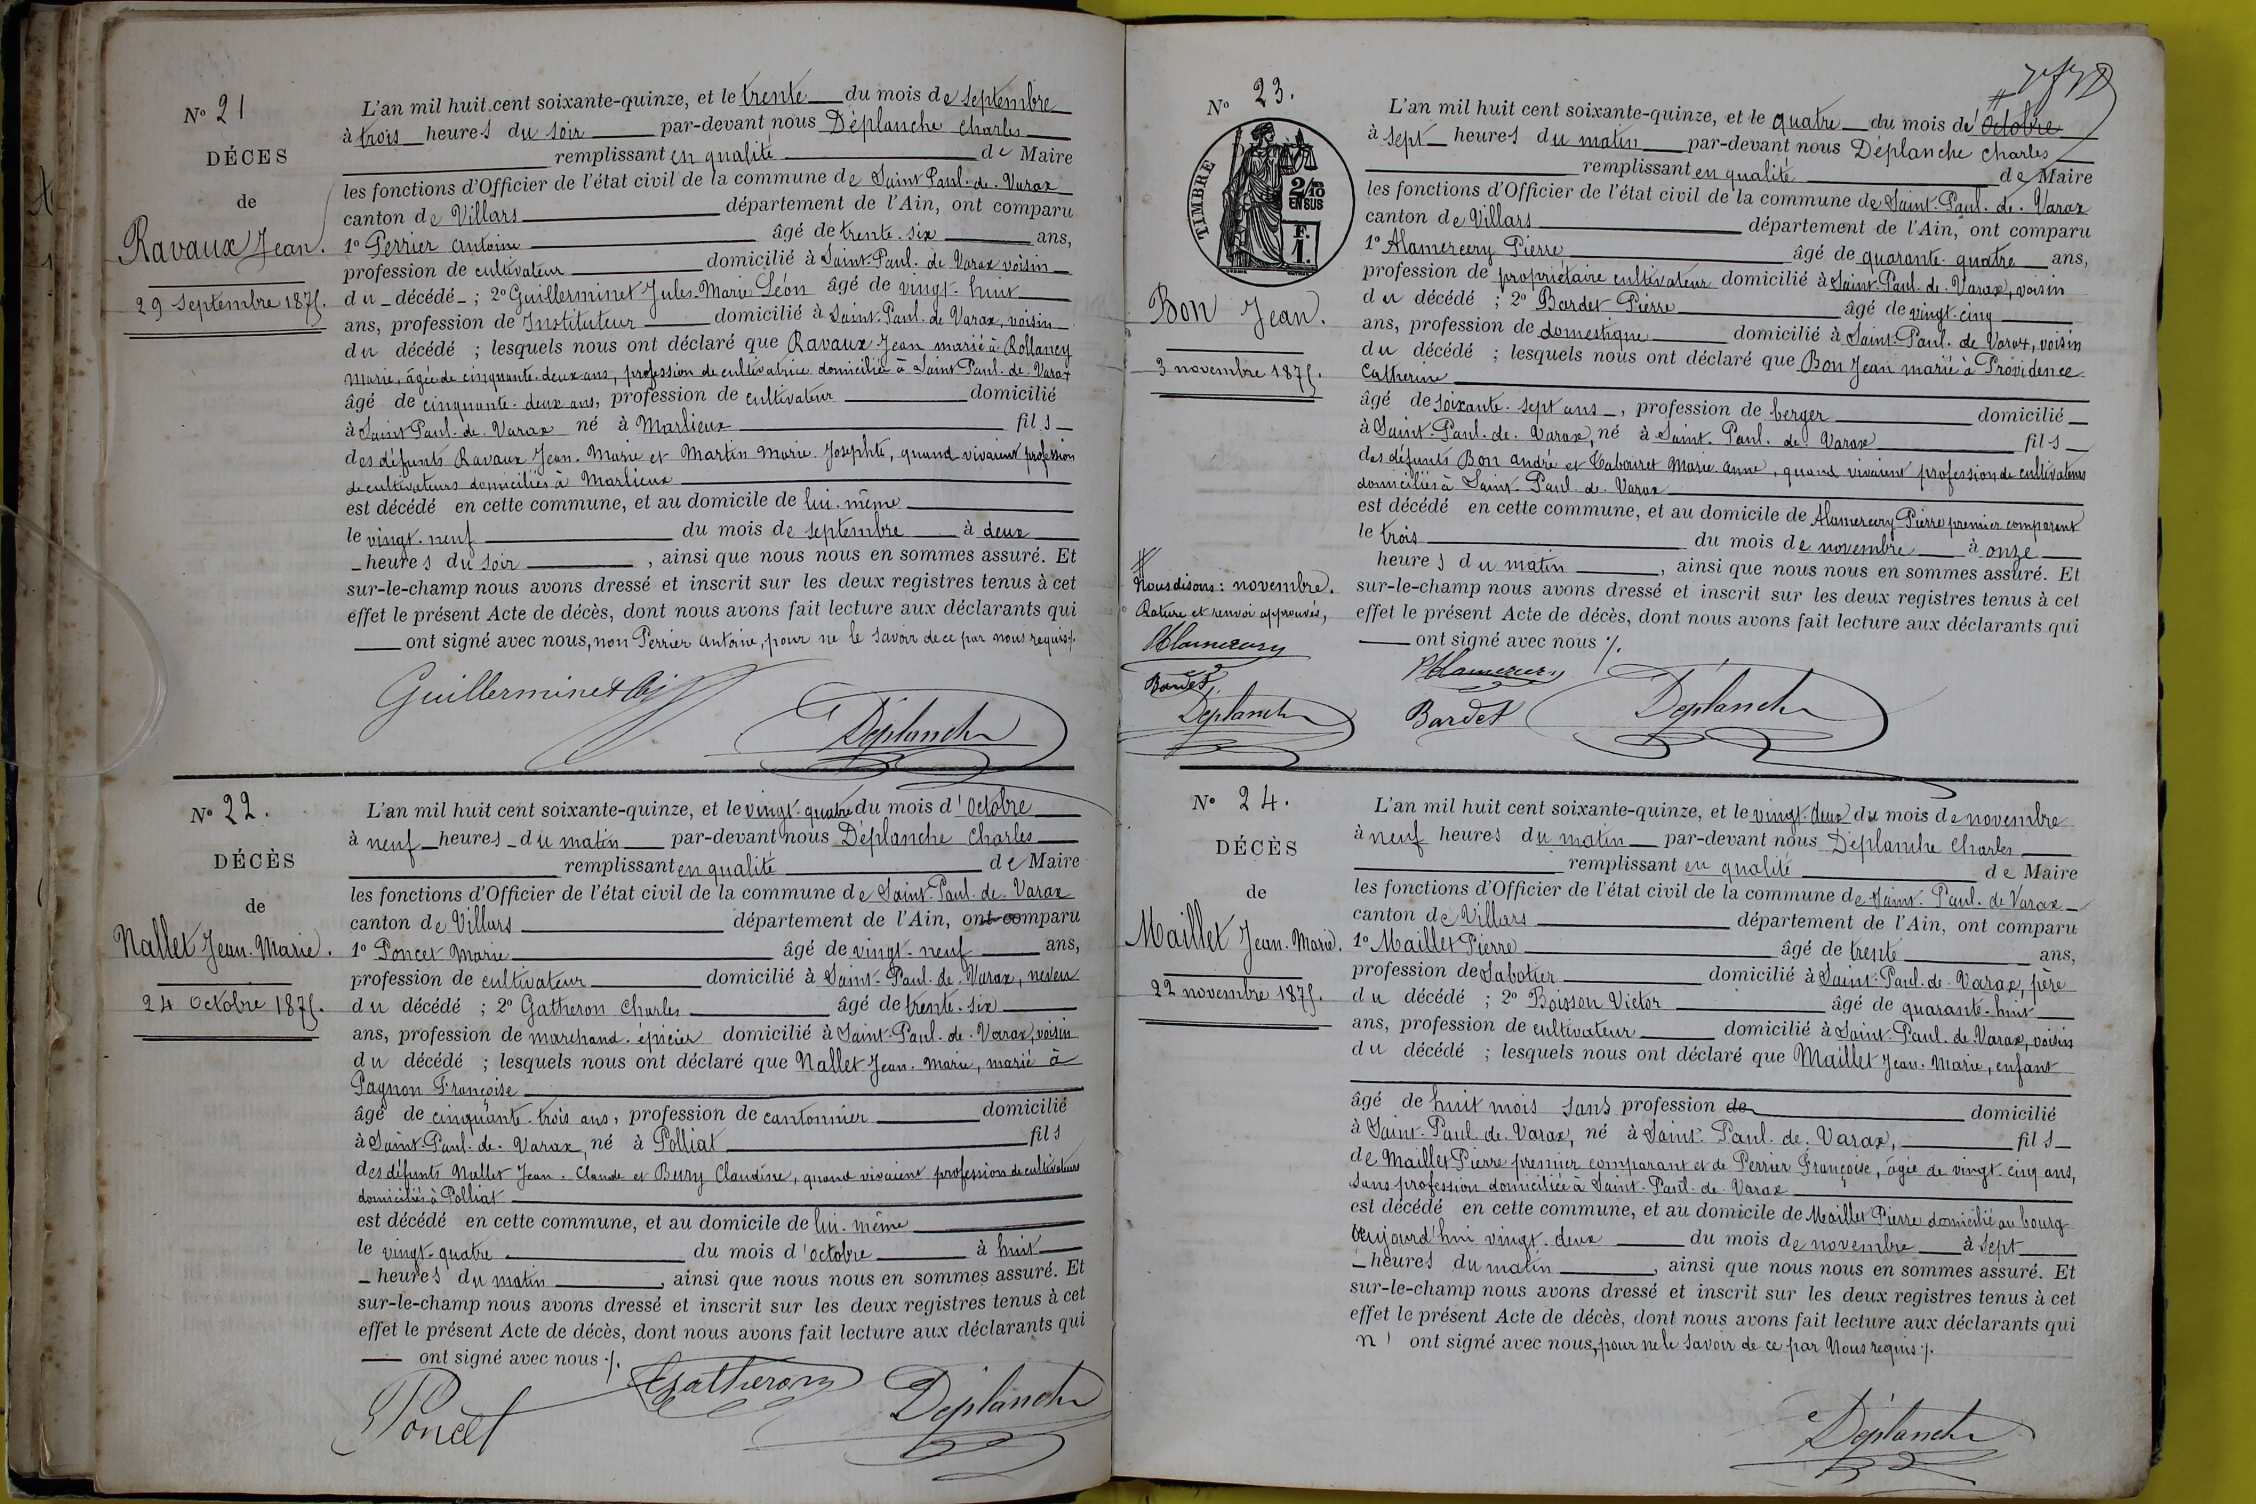 N° 21
DÉCES
de
Ravaux Jean.
29 Septembre 1875.
L'an mil huit cent soixante-quinze, et le trente du mois de Septembre
à trois heures du soir par-devant nous Déplanche Charles
remplissant en qualité de Maire
les fonctions d'Officier de l'état civil de la commune de Saint-Paul-de-Varax
canton de Villars département de l'Ain, ont comparu
1° Perrier Antoine âgé de trente-six ans,
profession de cultivateur domicilié à Saint-Paul-de-Varax voisin
du décédé ; 2° Guillerminet Jules-Marie Léon âgé de vingt-huit
ans, profession de Instituteur domicilié à Saint-Paul-de-Varax, voisin
du décédé ; lesquels nous ont déclaré que Ravaux Jean marié à Rollancy
Marie, âgée de cinquante-deux ans, profession de cultivatrice domiciliée à Saint-Paul-de-Varax
âgé de cinquante-deux ans, profession de cultivateur domicilié
à Saint-Paul-de-Varax né à Marlieux fils
des défunts Ravaux Jean-Marie et Martin Marie-Josephte, quand vivaient profession
de cultivateurs domiciliés à Marlieux
est décédé en cette commune, et au domicile de lui-même
le vingt-neuf du mois de septembre à deux
heures du soir, ainsi que nous nous en sommes assuré. Et
sur-le-champ nous avons dressé et inscrit sur les deux registres tenus à cet
effet le présent Acte de décès, dont nous avons fait lecture aux déclarants qui
ont signé avec nous, non Perrier Antoine, pour ne le savoir de ce par nous requis ./.
Guillerminet
Déplanche
N° 22.
DÉCÈS
de
Nallet Jean-Marie.
24 Octobre 1875.
L'an mil huit cent soixante-quinze, et le vingt-quatre du mois d'Octobre
à neuf heures du matin par-devant nous Déplanche Charles
remplissant en qualité de Maire
les fonctions d'Officier de l'état civil de la commune de Saint-Paul-de-Varax
canton de Villars département de l'Ain, ont comparu
1° Poncet Marie âgé de vingt-neuf ans,
profession de cultivateur domicilié à Saint-Paul-de-Varax, neveu
du décédé ; 2° Gatheron Charles âgé de trente-six
ans, profession de marchand-épicier domicilié à Saint-Paul-de-Varax, voisin
du décédé ; lesquels nous ont déclaré que Nallet Jean-Marie, marié à
Pagnon Françoise
âgé de cinquante-trois ans, profession de cantonnier domicilié
à Saint-Paul-de-Varax, né à Polliat fils
des défunts Nallet Jean-Claude et Bury Claudine, quand vivaient profession de cultivateurs
domiciliés à Polliat
est décédé en cette commune, et au domicile de lui-même
le vingt-quatre du mois d'octobre à huit
heures du matin, ainsi que nous nous en sommes assuré. Et
sur-le-champ nous avons dressé et inscrit sur les deux registres tenus à cet
effet le présent Acte de décès, dont nous avons fait lecture aux déclarants qui
ont signé avec nous ./.
Poncet
Gatheron
Déplanche
N° 23.
TIMBRE
2/10 EN SUS
F. 1.
Bon Jean.
3 novembre 1875.
L'an mil huit cent soixante-quinze, et le quatre du mois d'Octobre
à sept heures du matin par-devant nous Déplanche Charles
remplissant en qualité de Maire
les fonctions d'Officier de l'état civil de la commune de Saint-Paul-de-Varax
canton de Villars département de l'Ain, ont comparu
1° Alamercery Pierre âgé de quarante-quatre ans,
profession de propriétaire cultivateur domicilié à Saint-Paul-de-Varax, voisin
du décédé ; 2° Bardet Pierre âgé de vingt-cinq
ans, profession de domestique domicilié à Saint-Paul-de-Varax, voisin
du décédé ; lesquels nous ont déclaré que Bon Jean marié à Providence
Catherine
âgé de soixante-sept ans, profession de berger domicilié
à Saint-Paul-de-Varax, né à Saint-Paul-de-Varax fils
des défunts Bon André et Tabouret Marie-Anne, quand vivaient profession de cultivateurs
domiciliés à Saint-Paul-de-Varax
est décédé en cette commune, et au domicile de Alamercery Pierre premier comparant
le trois du mois de novembre à onze
heures du matin, ainsi que nous nous en sommes assuré. Et
sur-le-champ nous avons dressé et inscrit sur les deux registres tenus à cet
effet le présent Acte de décès, dont nous avons fait lecture aux déclarants qui
ont signé avec nous ./.
Nous disons : novembre.
Rature et renvoi approuvés,
Alamercery
Bardet
Déplanche
Alamercery
Bardet
Déplanche
N° 24.
DÉCÈS
de
Maillet Jean-Marie.
22 novembre 1875.
L'an mil huit cent soixante-quinze, et le vingt-deux du mois de novembre
à neuf heures du matin par-devant nous Déplanche Charles
remplissant en qualité de Maire
les fonctions d'Officier de l'état civil de la commune de Saint-Paul-de-Varax
canton de Villars département de l'Ain, ont comparu
1° Maillet Pierre âgé de trente ans,
profession de Sabotier domicilié à Saint-Paul-de-Varax, père
du décédé ; 2° Boisson Victor âgé de quarante-huit
ans, profession de cultivateur domicilié à Saint-Paul-de-Varax, voisin
du décédé ; lesquels nous ont déclaré que Maillet Jean-Marie, enfant
âgé de huit mois sans profession de domicilié
à Saint-Paul-de-Varax, né à Saint-Paul-de-Varax, fils
de Maillet Pierre premier comparant et de Perrier Françoise, âgée de vingt-cinq ans,
sans profession domiciliée à Saint-Paul-de-Varax
est décédé en cette commune, et au domicile de Maillet Pierre domicilié au bourg
aujourd'hui vingt-deux du mois de novembre à sept
heures du matin, ainsi que nous nous en sommes assuré. Et
sur-le-champ nous avons dressé et inscrit sur les deux registres tenus à cet
effet le présent Acte de décès, dont nous avons fait lecture aux déclarants qui
n'ont signé avec nous, pour ne le savoir de ce par Nous requis ./.
Déplanche